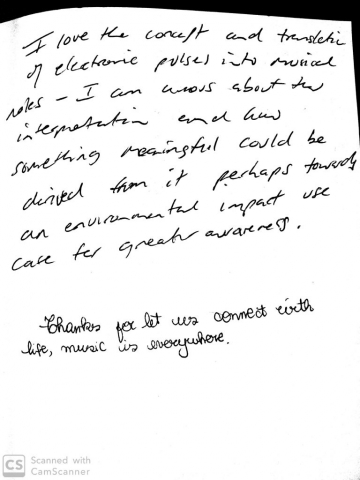 I love the concept and translation
of electronic pulses into musical
notes - I am curious about the
interpretation and how
something meaningful could be
derived from it perhaps towards
an environmental impact use
case for greater awareness.
Thanks for let us connect with
life, music is everywhere.
CS Scanned with
CamScanner